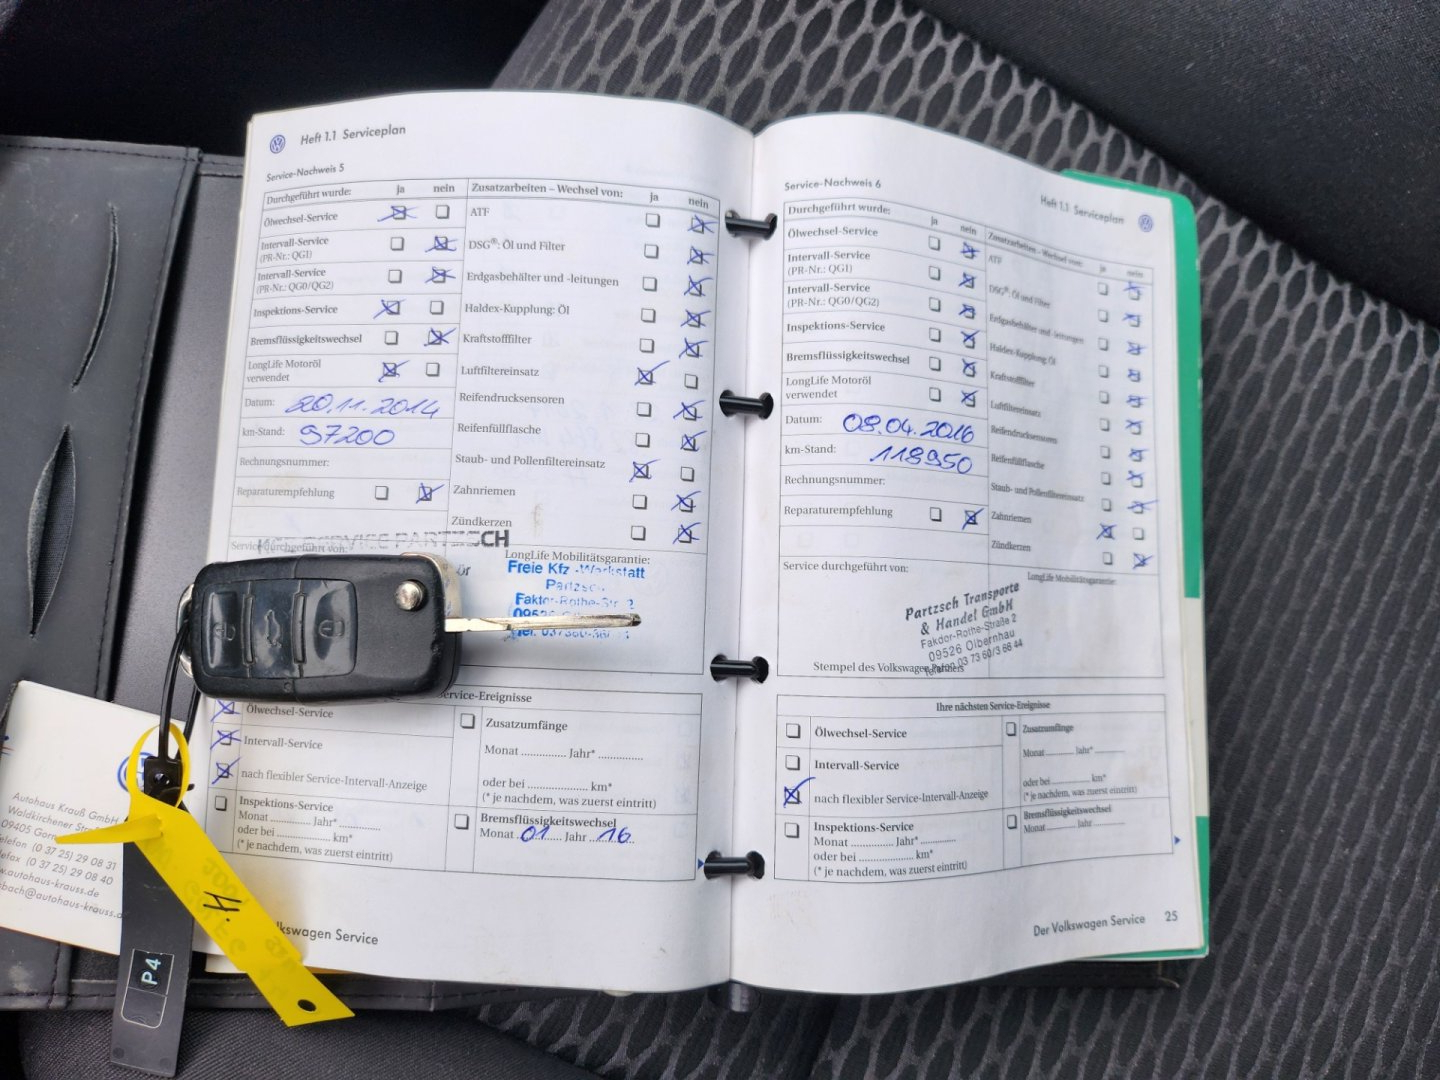 Heft 1.1 Serviceplan
Service-Nachweis 5
Durchgeführt wurde: ja nein
Ölwechsel-Service
Intervall-Service
(PR-Nr.: QG1)
Intervall-Service
(PR-Nr.: QG0/QG2)
Inspektions-Service
Bremsflüssigkeitswechsel
LongLife Motoröl
verwendet
Datum: 20.11.2014
km-Stand: 97200
Rechnungsnummer:
Reparaturempfehlung
Zusatzarbeiten – Wechsel von: ja nein
ATF
DSG®: Öl und Filter
Erdgasbehälter und -leitungen
Haldex-Kupplung: Öl
Kraftstofffilter
Luftfiltereinsatz
Reifendrucksensoren
Reifenfüllflasche
Staub- und Pollenfiltereinsatz
Zahnriemen
Zündkerzen
Service durchgeführt von:
SERVICE PARTZSCH
LongLife Mobilitätsgarantie:
Freie Kfz-Werkstatt
Partzsch
Faktor-Rothe-Str. 2
Service-Ereignisse
Ölwechsel-Service
Intervall-Service
nach flexibler Service-Intervall-Anzeige
Inspektions-Service
Monat .............. Jahr* ..............
oder bei ........................ km*
(* je nachdem, was zuerst eintritt)
Zusatzumfänge
Monat .............. Jahr* ..............
oder bei ........................ km*
(* je nachdem, was zuerst eintritt)
Bremsflüssigkeitswechsel
Monat 01 Jahr 16
Volkswagen Service
Heft 1.1 Serviceplan
Service-Nachweis 6
Durchgeführt wurde: ja nein
Ölwechsel-Service
Intervall-Service
(PR-Nr.: QG1)
Intervall-Service
(PR-Nr.: QG0/QG2)
Inspektions-Service
Bremsflüssigkeitswechsel
LongLife Motoröl
verwendet
Datum: 08.04.2016
km-Stand: 118950
Rechnungsnummer:
Reparaturempfehlung
Zusatzarbeiten – Wechsel von: ja nein
ATF
DSG®: Öl und Filter
Erdgasbehälter und -leitungen
Haldex-Kupplung: Öl
Kraftstofffilter
Luftfiltereinsatz
Reifendrucksensoren
Reifenfüllflasche
Staub- und Pollenfiltereinsatz
Zahnriemen
Zündkerzen
Service durchgeführt von:
LongLife Mobilitätsgarantie:
Partzsch Transporte
& Handel GmbH
Fakdor-Rothe-Straße 2
09526 Olbernhau
Telefon 03 73 60/3 66 44
Stempel des Volkswagen Partners
Ihre nächsten Service-Ereignisse
Ölwechsel-Service
Intervall-Service
nach flexibler Service-Intervall-Anzeige
Inspektions-Service
Monat .............. Jahr* ..............
oder bei ........................ km*
(* je nachdem, was zuerst eintritt)
Zusatzumfänge
Monat .............. Jahr* ..............
oder bei ........................ km*
(* je nachdem, was zuerst eintritt)
Bremsflüssigkeitswechsel
Monat .............. Jahr ..............
Der Volkswagen Service 25
Autohaus Krauß GmbH
Waldkirchener
09405
Telefon (0 37 25) 29 08 31
Telefax (0 37 25) 29 08 40
www.autohaus-krauss.de
bach@autohaus-krauss.de
P4
H.